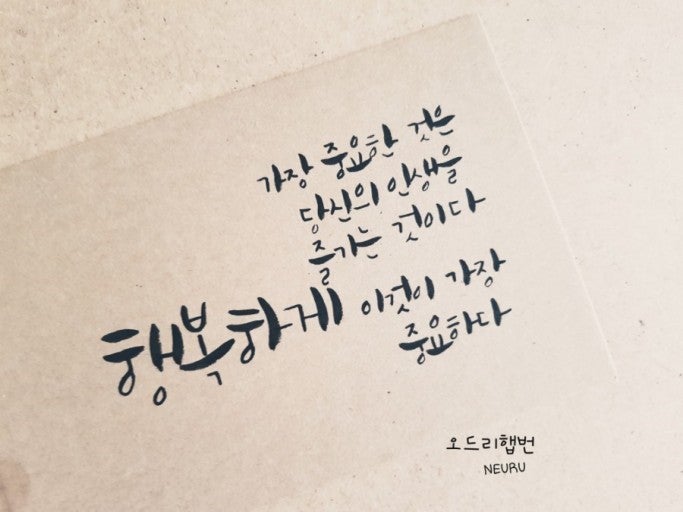 가장 중요한 것은
당신의 인생을
즐기는 것이다
행복하게 이것이 가장
중요하다
오드리햅번
NEURU